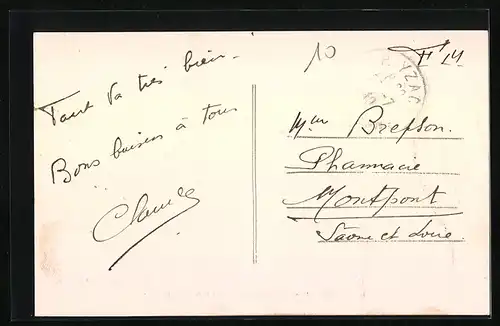 Tout va très bien.
Bons baisers à tous
Claude
10
F M
AZAC
Mr Bresson.
Pharmacie
Montpont
Saône et Loire.